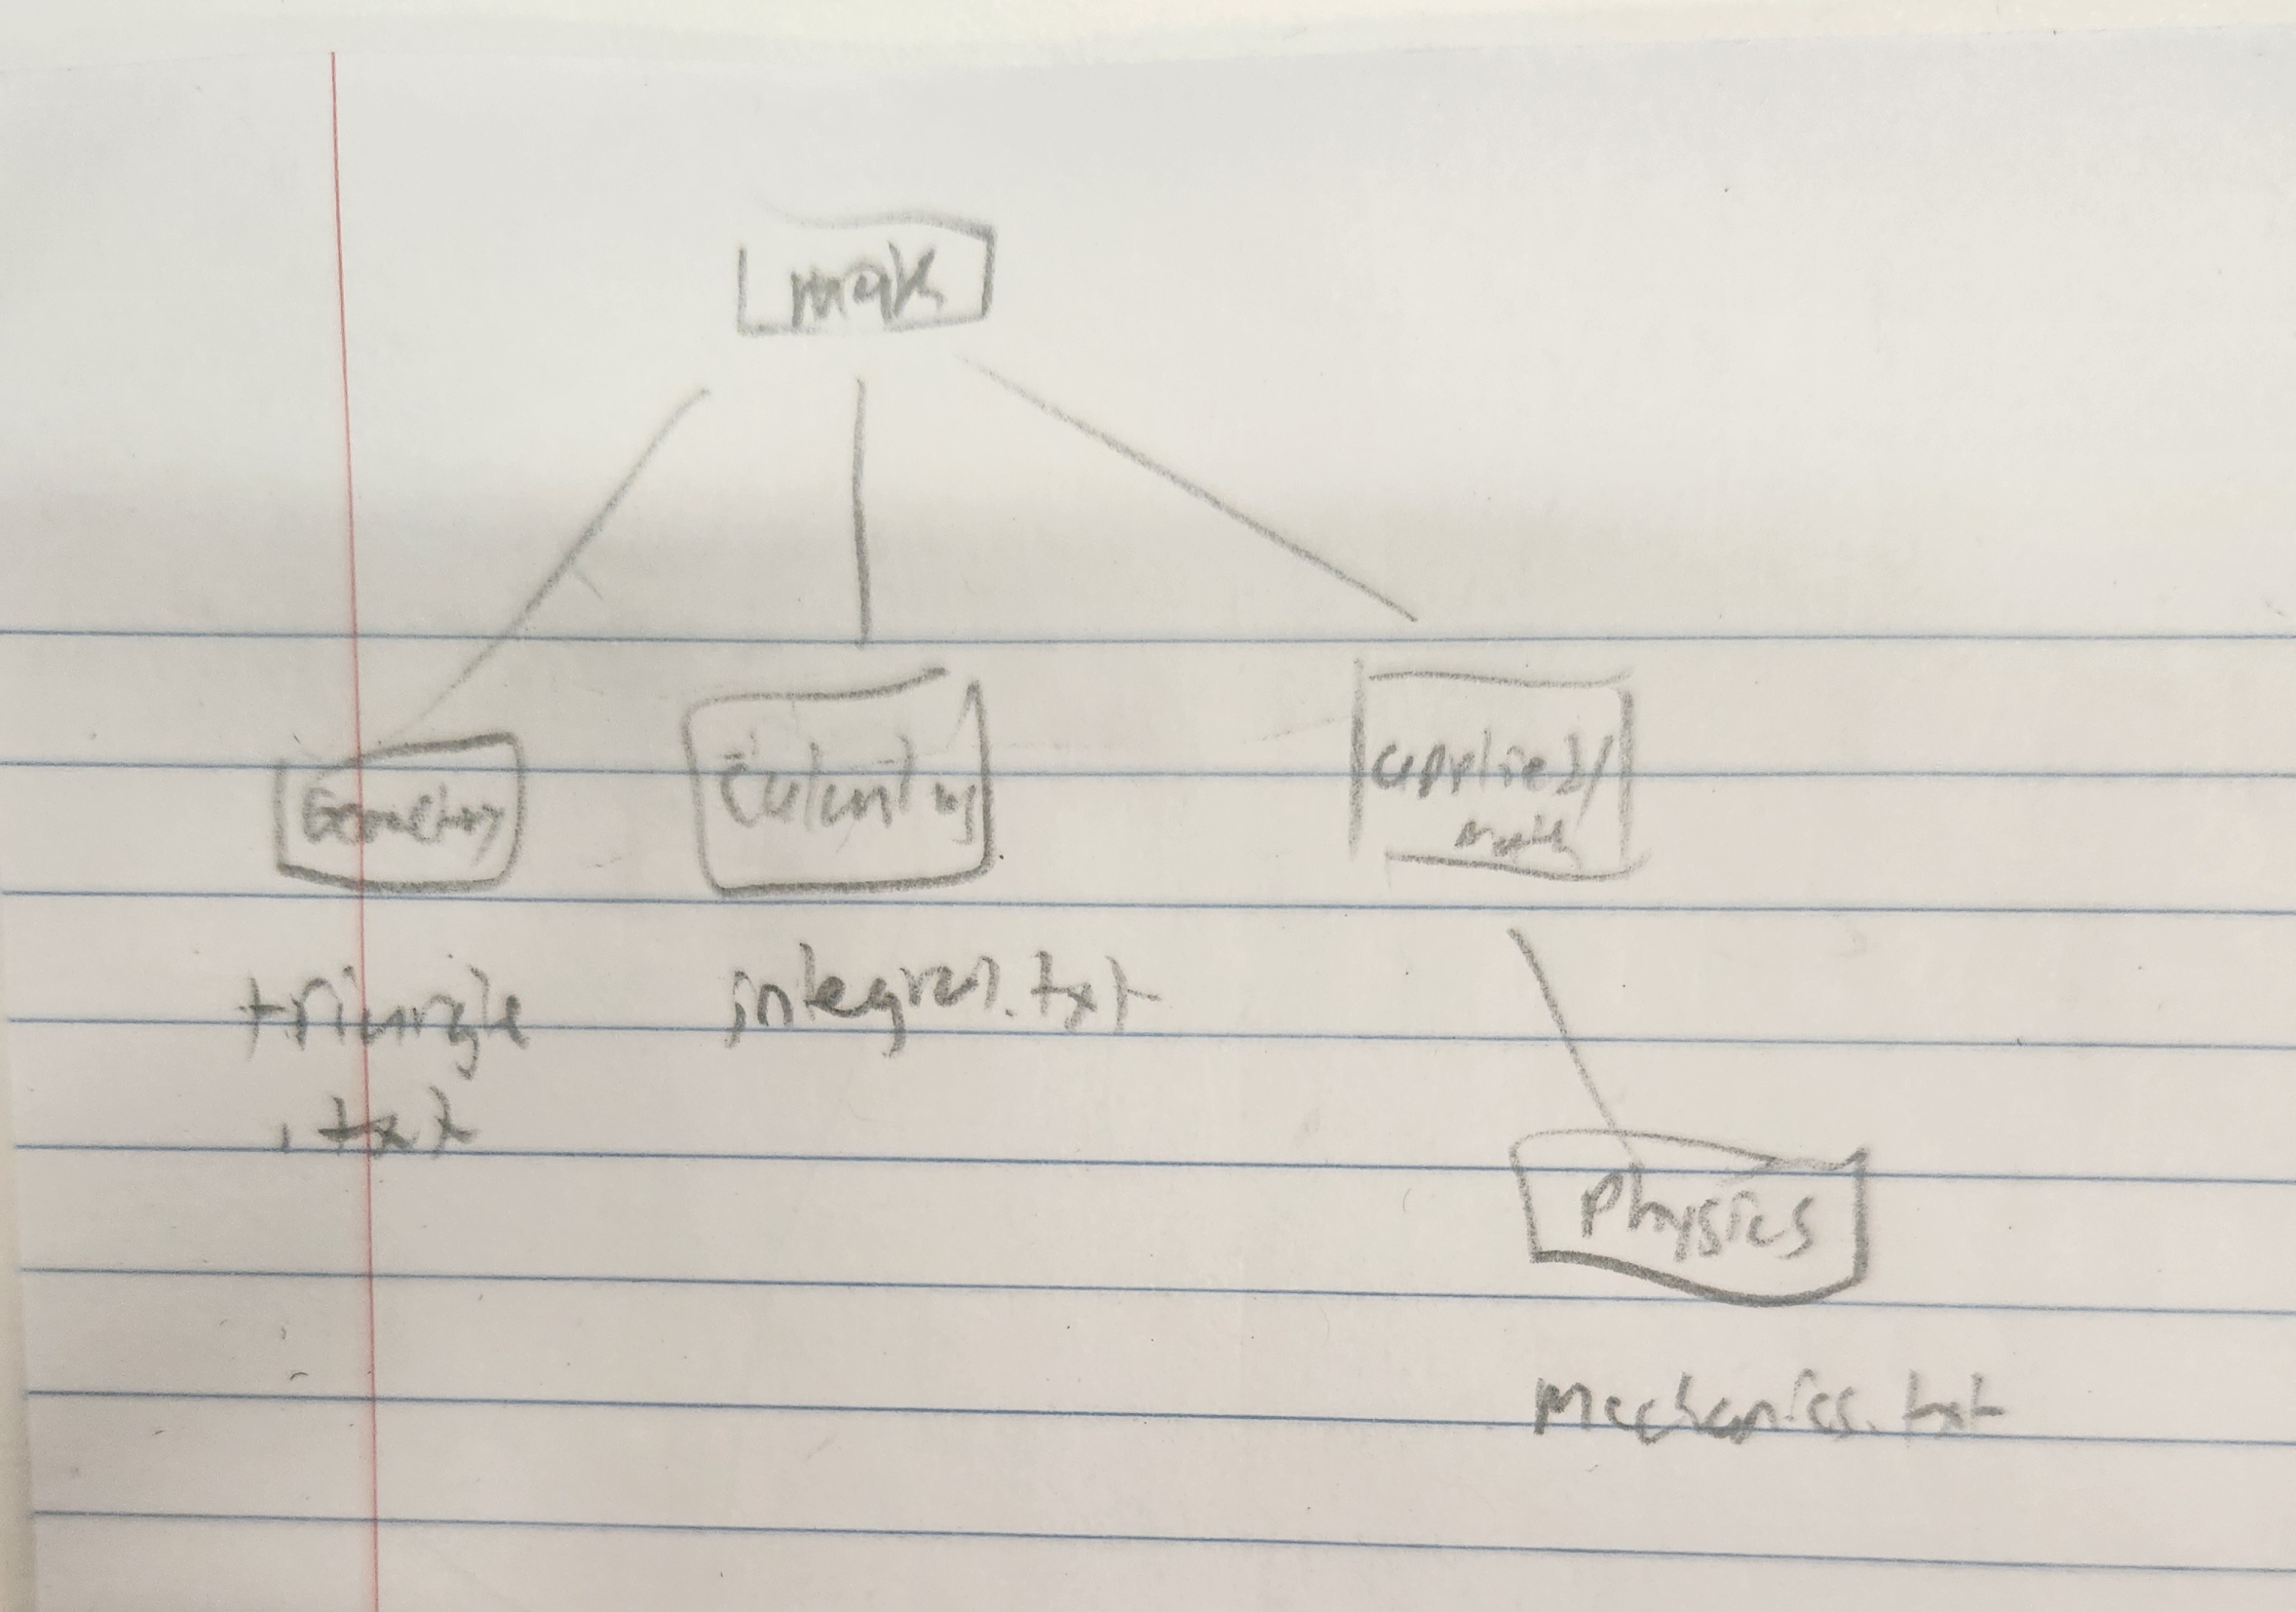 math
Geometry
Calculus
applied/
math
triangle
.txt
integral.txt
Physics
Mechanics.txt